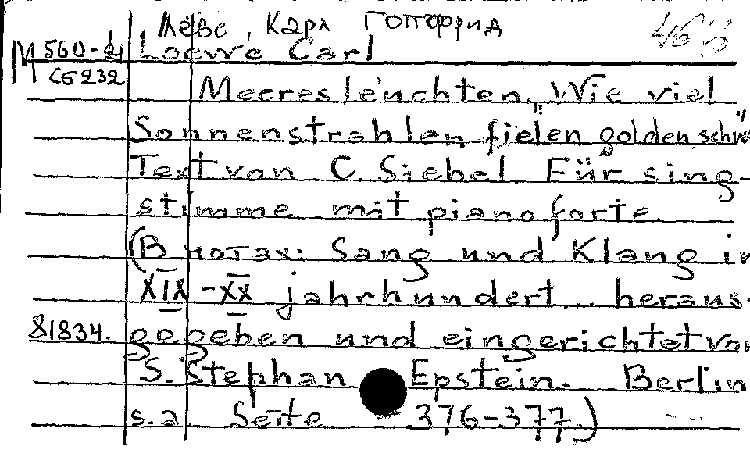 Леве, Карл Готфрид
М 560-21 Loewe Carl
Сб232
Meeresleuchten „Wie viel
Sonnenstrahlen fielen golden schwe
Text von C. Siebel Für sing-
stimme mit pianoforte
(В нотах: Sang und Klang in
XIX-XX jahrhundert.. heraus-
81834. gegeben und eingerichtet von
S. Stephan Epstein. Berlin
s.a. Seite 376-377.)